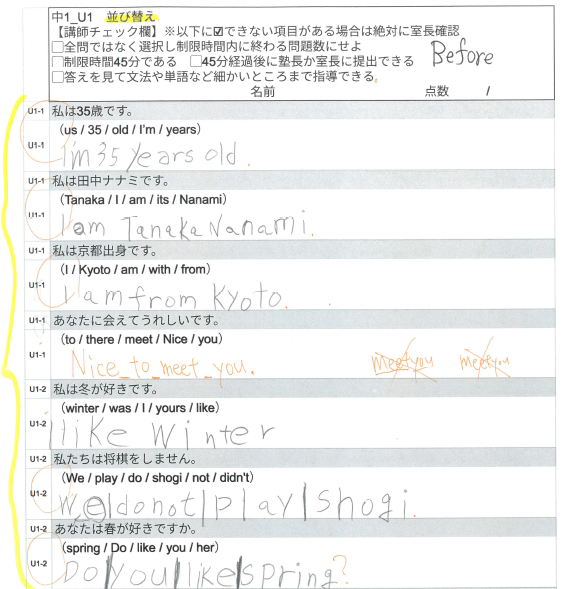 中1_U1 並び替え
【講師チェック欄】※以下に☑できない項目がある場合は絶対に室長確認
□全問ではなく選択し制限時間内に終わる問題数にせよ
□制限時間45分である □45分経過後に塾長か室長に提出できる
Before
□答えを見て文法や単語など細かいところまで指導できる。
名前 点数 /
U1-1 私は35歳です。
(us / 35 / old / I'm / years)
U1-1 I'm 35 years old.
U1-1 私は田中ナナミです。
(Tanaka / I / am / its / Nanami)
U1-1 I am Tanaka Nanami.
U1-1 私は京都出身です。
(I / Kyoto / am / with / from)
U1-1 I am from Kyoto.
U1-1 あなたに会えてうれしいです。
(to / there / meet / Nice / you)
U1-1 Nice_to_meet_you. meetyou meetyou
U1-2 私は冬が好きです。
(winter / was / I / yours / like)
U1-2 I like Winter
U1-2 私たちは将棋をしません。
(We / play / do / shogi / not / didn't)
U1-2 We|donot|play|Shogi.
U1-2 あなたは春が好きですか。
(spring / Do / like / you / her)
U1-2 Do|you|like|spring?